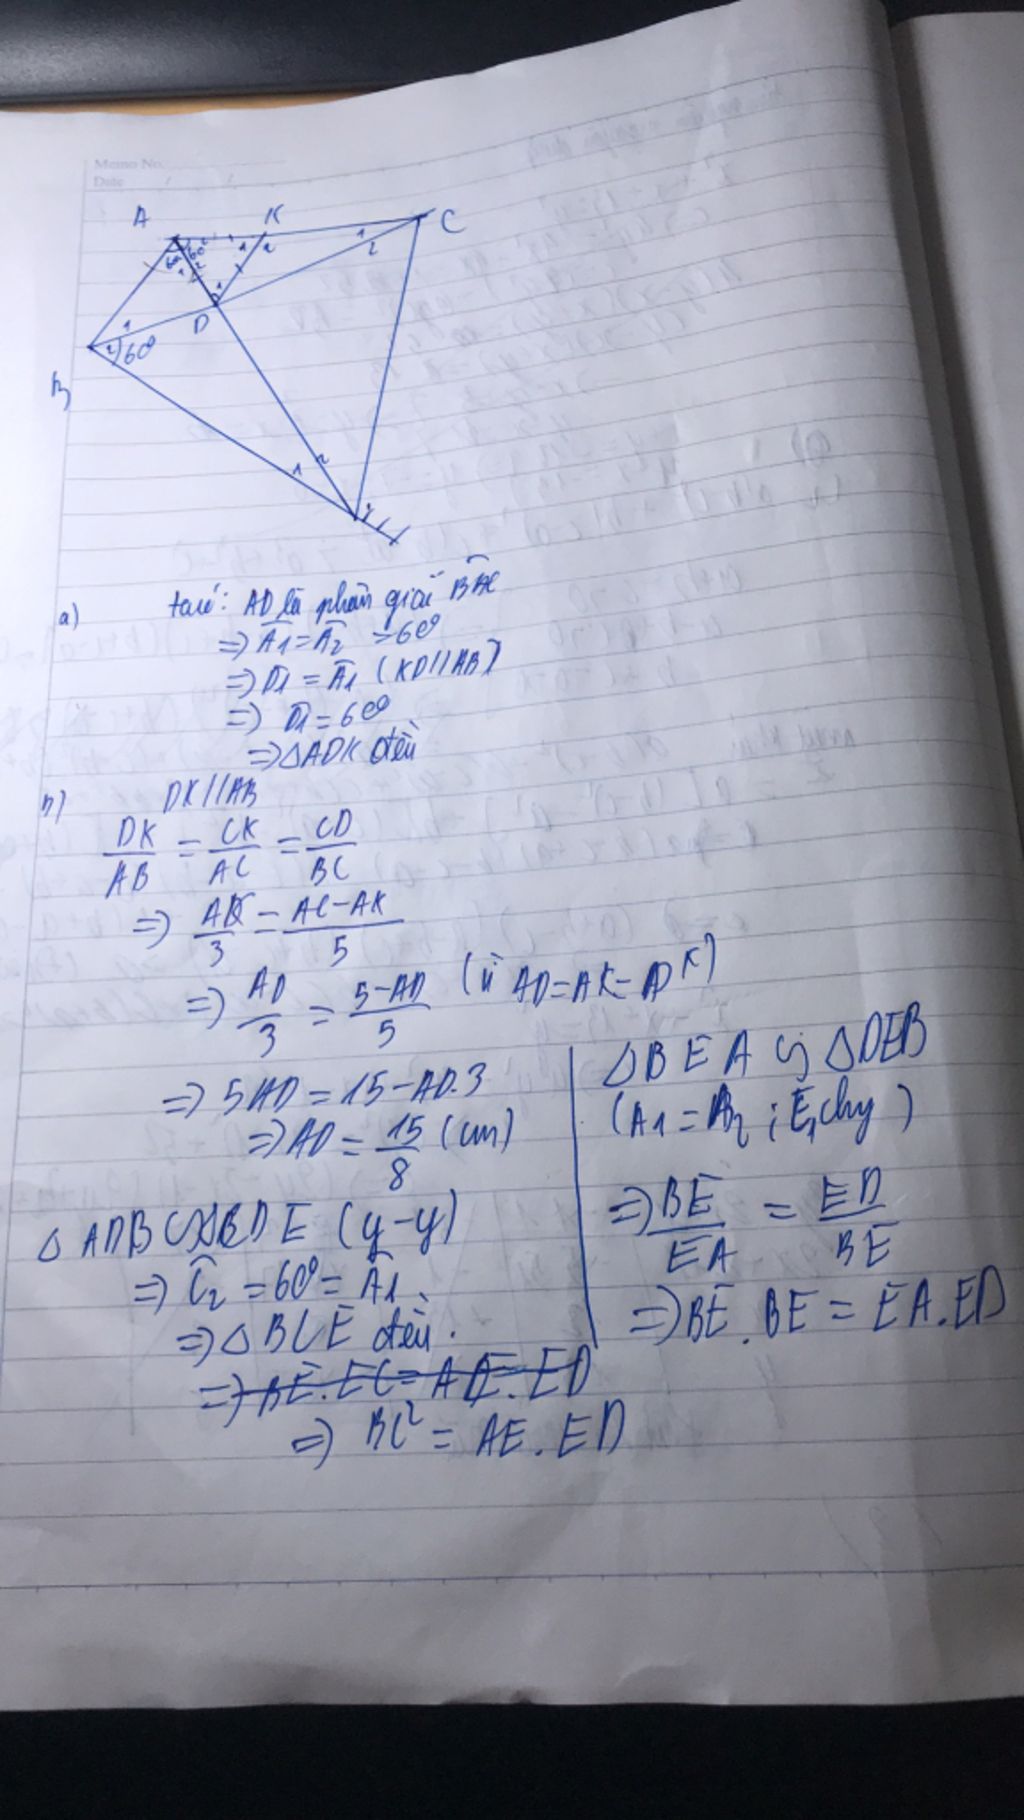 Memo No.
Date / /
A K C
1 1 2 1 2
60° 60°
1 2
1
D
1
2 60°
B
1 2
a) ta có: AD là phân giác BAC
=> A1 = A2 = 60°
=> D1 = A1 (KD // AB)
=> D1 = 60°
=> △ADK đều
b) DK // AB
DK/AB = CK/AC = CD/BC
=> AD/3 = AC - AK/5
=> AD/3 = 5 - AD/5 (vì AD = AK = DK)
=> 5AD = 15 - AD.3
=> AD = 15/8 (cm)
△ADB ∽ BDE (g-g)
=> C2 = 60° = A1
=> △BCE đều.
=> BE.EC = AE.ED
=> BC² = AE.ED
△BEA ∽ △DEB
(A1 = B2 ; E1 chg)
=> BE/EA = ED/BE
=> BE.BE = EA.ED